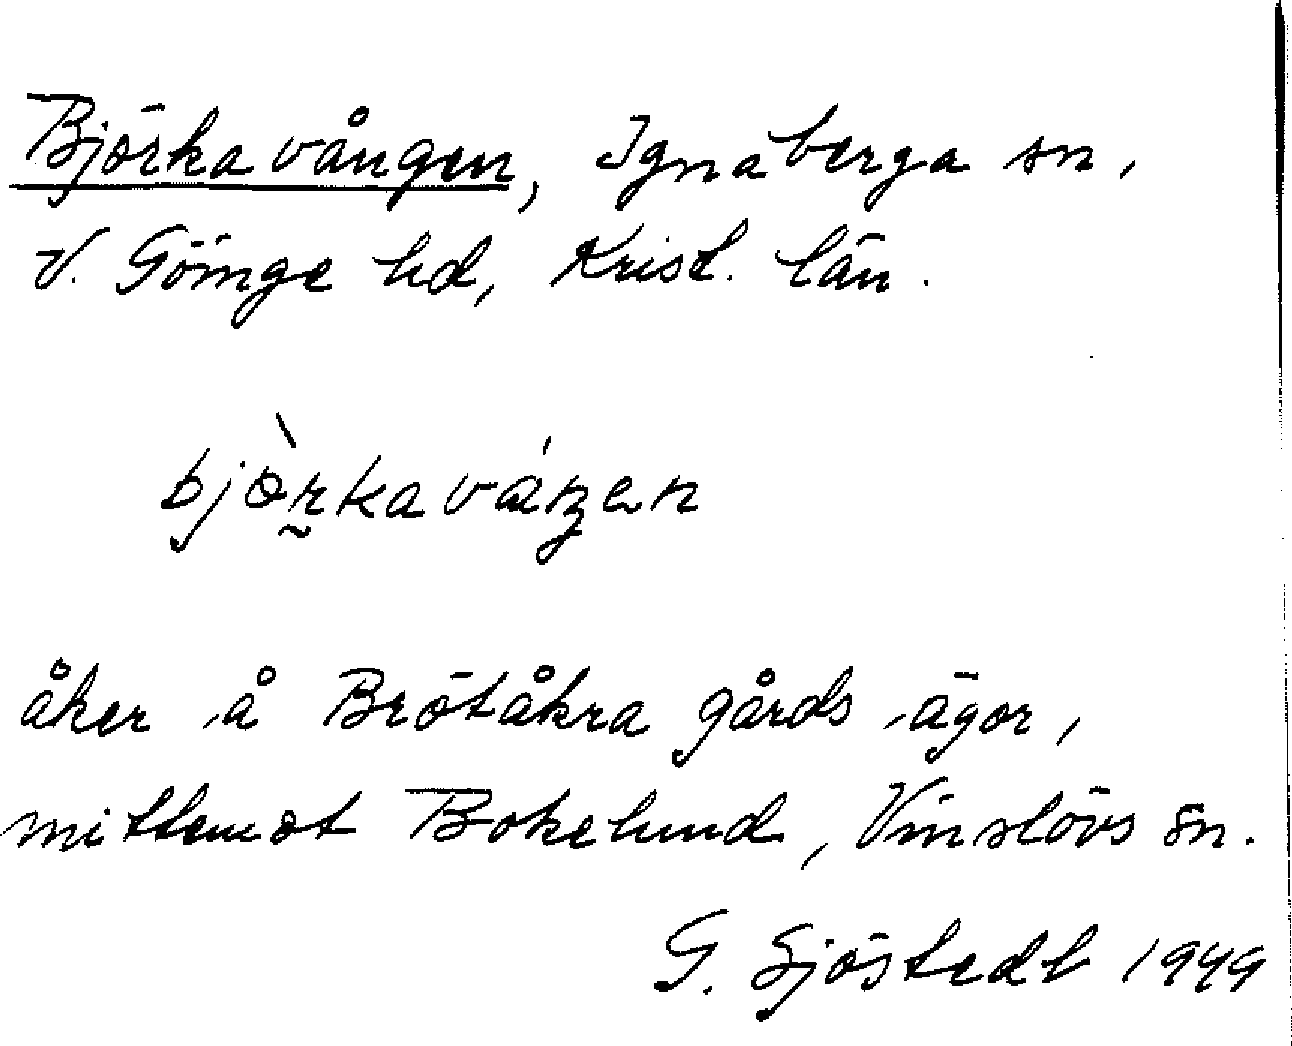 Björkavången, Ignaberga sn,
V. Göinge hd, Krist. län.
bjòrkaváŋen
åker å Brötåkra gårds ägor,
mittemot Bokelund, Vinslövs sn.
G. Sjöstedt 1949